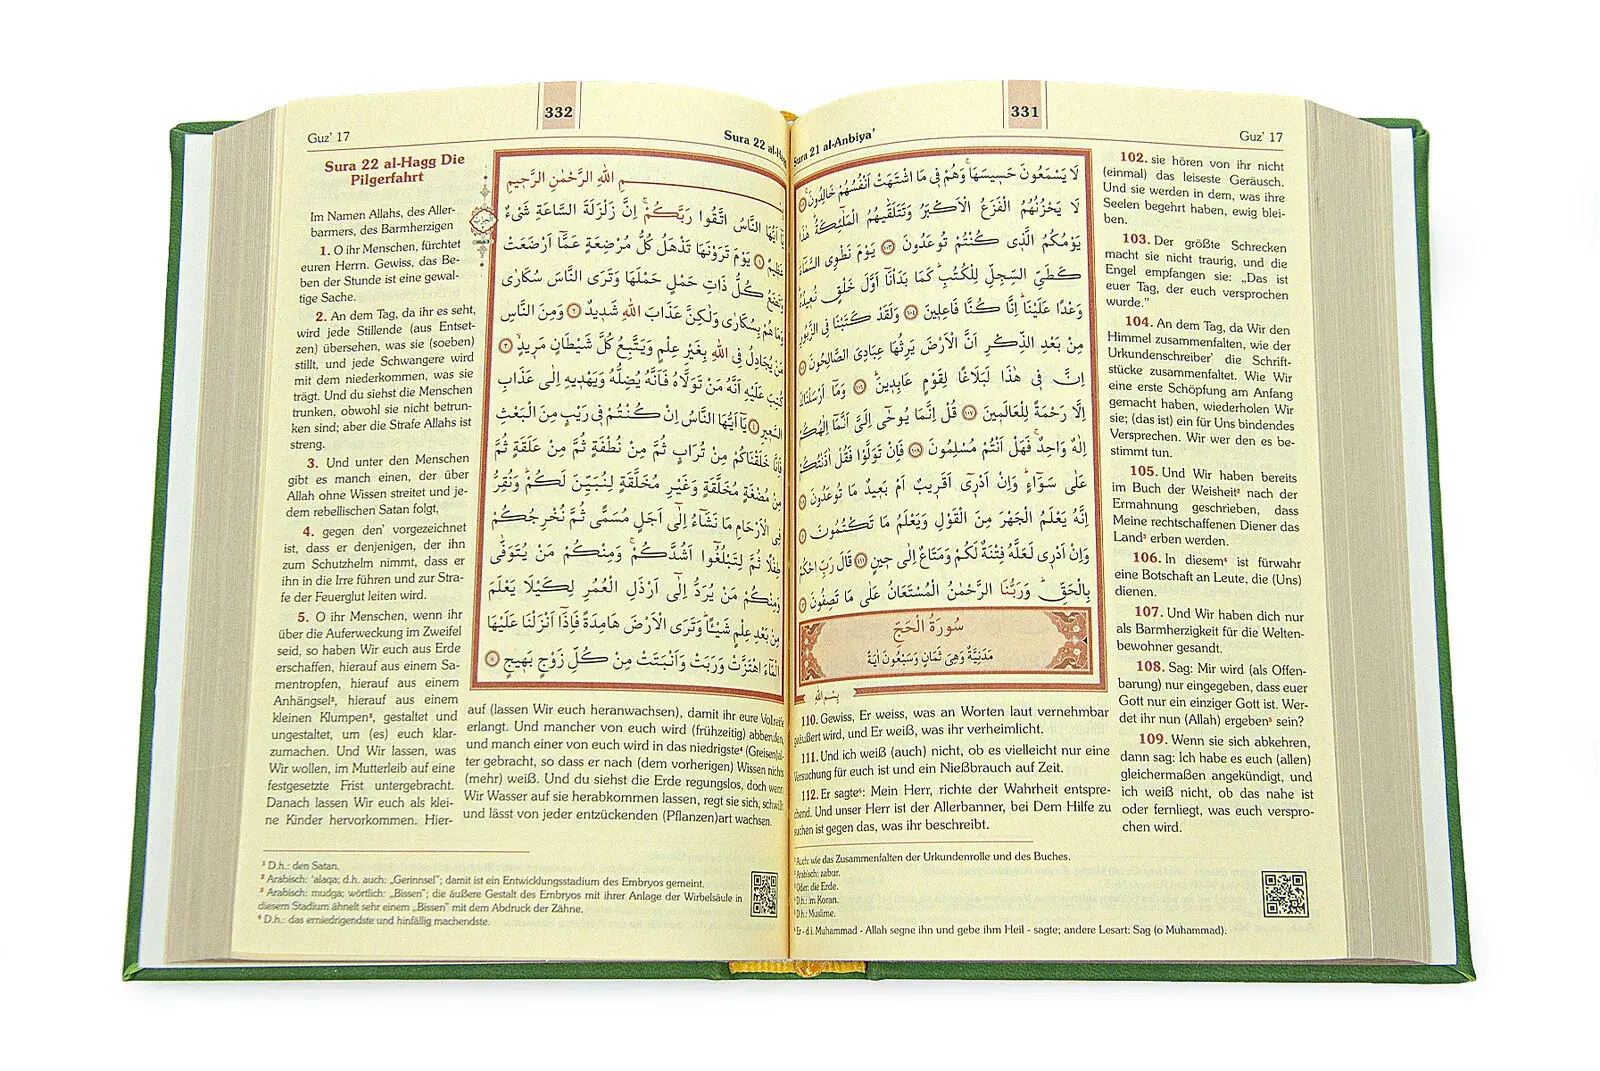 331
Guz' 17
Sura 21 al-Anbiya'
لَا يَسْمَعُونَ حَسِيسَهَاۚ وَهُمْ فِى مَا اشْتَهَتْ اَنْفُسُهُمْ خَالِدُونَ
لَا يَحْزُنُهُمُ الْفَزَعُ الْاَكْبَرُ وَتَتَلَقّٰيهُمُ الْمَلٰٓئِكَةُ هٰذَا
يَوْمُكُمُ الَّذِى كُنْتُمْ تُوعَدُونَ ﴿١٠٣﴾ يَوْمَ نَطْوِى السَّمَٓاءَ
كَطَىِّ السِّجِلِّ لِلْكُتُبِ كَمَا بَدَاْنَٓا اَوَّلَ خَلْقٍ نُعِيدُهُ
وَعْدًا عَلَيْنَا اِنَّا كُنَّا فَاعِلِينَ ﴿١٠٤﴾ وَلَقَدْ كَتَبْنَا فِى الزَّبُورِ
مِنْ بَعْدِ الذِّكْرِ اَنَّ الْاَرْضَ يَرِثُهَا عِبَادِىَ الصَّالِحُونَ
اِنَّ فِى هٰذَا لَبَلَاغًا لِقَوْمٍ عَابِدِينَ ﴿١٠٦﴾ وَمَٓا اَرْسَلْنَاكَ
اِلَّا رَحْمَةً لِلْعَالَمِينَ ﴿١٠٧﴾ قُلْ اِنَّمَا يُوحٰٓى اِلَىَّ اَنَّمَٓا اِلٰهُكُمْ
اِلٰهٌ وَاحِدٌۚ فَهَلْ اَنْتُمْ مُسْلِمُونَ ﴿١٠٨﴾ فَاِنْ تَوَلَّوْا فَقُلْ اٰذَنْتُكُمْ
عَلٰى سَوَٓاءٍ وَاِنْ اَدْرِٓى اَقَرِيبٌ اَمْ بَعِيدٌ مَا تُوعَدُونَ
اِنَّهُ يَعْلَمُ الْجَهْرَ مِنَ الْقَوْلِ وَيَعْلَمُ مَا تَكْتُمُونَ
وَاِنْ اَدْرِى لَعَلَّهُ فِتْنَةٌ لَكُمْ وَمَتَاعٌ اِلٰى حِينٍ ﴿١١١﴾ قَالَ رَبِّ احْكُمْ
بِالْحَقِّ وَرَبُّنَا الرَّحْمٰنُ الْمُسْتَعَانُ عَلٰى مَا تَصِفُونَ
سُورَةُ الْحَجِّ
مَدَنِيَّةٌ وَهِىَ ثَمَانٍ وَسَبْعُونَ اٰيَةً
بِسْمِ اللهِ
102. sie hören von ihr nicht
(einmal) das leiseste Geräusch.
Und sie werden in dem, was ihre
Seelen begehrt haben, ewig blei-
ben.
103. Der größte Schrecken
macht sie nicht traurig, und die
Engel empfangen sie: „Das ist
euer Tag, der euch versprochen
wurde.“
104. An dem Tag, da Wir den
Himmel zusammenfalten, wie der
Urkundenschreiber¹ die Schrift-
stücke zusammenfaltet. Wie Wir
eine erste Schöpfung am Anfang
gemacht haben, wiederholen Wir
sie; (das ist) ein für Uns bindendes
Versprechen. Wir wer den es be-
stimmt tun.
105. Und Wir haben bereits
im Buch der Weisheit² nach der
Ermahnung geschrieben, dass
Meine rechtschaffenen Diener das
Land³ erben werden.
106. In diesem⁴ ist fürwahr
eine Botschaft an Leute, die (Uns)
dienen.
107. Und Wir haben dich nur
als Barmherzigkeit für die Welten-
bewohner gesandt.
108. Sag: Mir wird (als Offen-
barung) nur eingegeben, dass euer
Gott nur ein einziger Gott ist. Wer-
det ihr nun (Allah) ergeben⁵ sein?
109. Wenn sie sich abkehren,
dann sag: Ich habe es euch (allen)
gleichermaßen angekündigt, und
ich weiß nicht, ob das nahe ist
oder fernliegt, was euch verspro-
chen wird.
110. Gewiss, Er weiss, was an Worten laut vernehmbar
geäußert wird, und Er weiß, was ihr verheimlicht.
111. Und ich weiß (auch) nicht, ob es vielleicht nur eine
Versuchung für euch ist und ein Nießbrauch auf Zeit.
112. Er sagte⁶: Mein Herr, richte der Wahrheit entspre-
chend. Und unser Herr ist der Allerbanner, bei Dem Hilfe zu
suchen ist gegen das, was ihr beschreibt.
¹ Auch: wie das Zusammenfalten der Urkundenrolle und des Buches.
Arabisch: zabur.
Oder: die Erde.
D.h.: im Koran.
D.h.: Muslime.
Er - d.i. Muhammad - Allah segne ihn und gebe ihm Heil - sagte; andere Lesart: Sag (o Muhammad).
332
Guz' 17
Sura 22 al-Hagg
Sura 22 al-Hagg Die
Pilgerfahrt
Im Namen Allahs, des Aller-
barmers, des Barmherzigen
1. O ihr Menschen, fürchtet
euren Herrn. Gewiss, das Be-
ben der Stunde ist eine gewal-
tige Sache.
2. An dem Tag, da ihr es seht,
wird jede Stillende (aus Entset-
zen) übersehen, was sie (soeben)
stillt, und jede Schwangere wird
mit dem niederkommen, was sie
trägt. Und du siehst die Menschen
trunken, obwohl sie nicht betrun-
ken sind; aber die Strafe Allahs ist
streng.
3. Und unter den Menschen
gibt es manch einen, der über
Allah ohne Wissen streitet und je-
dem rebellischen Satan folgt,
4. gegen den¹ vorgezeichnet
ist, dass er denjenigen, der ihn
zum Schutzhelm nimmt, dass er
ihn in die Irre führen und zur Stra-
fe der Feuerglut leiten wird.
5. O ihr Menschen, wenn ihr
über die Auferweckung im Zweifel
seid, so haben Wir euch aus Erde
erschaffen, hierauf aus einem Sa-
mentropfen, hierauf aus einem
Anhängsel², hierauf aus einem
kleinen Klumpen³, gestaltet und
ungestaltet, um (es) euch klar-
zumachen. Und Wir lassen, was
Wir wollen, im Mutterleib auf eine
festgesetzte Frist untergebracht.
Danach lassen Wir euch als klei-
ne Kinder hervorkommen. Hier-
الْحِزْب
اللهِ الرَّحْمٰنِ الرَّحِيمِ
يَٓا اَيُّهَا النَّاسُ اتَّقُوا رَبَّكُمْۚ اِنَّ زَلْزَلَةَ السَّاعَةِ شَىْءٌ
عَظِيمٌ ﴿١﴾ يَوْمَ تَرَوْنَهَا تَذْهَلُ كُلُّ مُرْضِعَةٍ عَمَّٓا اَرْضَعَتْ
وَتَضَعُ كُلُّ ذَاتِ حَمْلٍ حَمْلَهَا وَتَرَى النَّاسَ سُكَارٰى
وَمَا هُمْ بِسُكَارٰى وَلٰكِنَّ عَذَابَ اللهِ شَدِيدٌ ﴿٢﴾ وَمِنَ النَّاسِ
مَنْ يُجَادِلُ فِى اللهِ بِغَيْرِ عِلْمٍ وَيَتَّبِعُ كُلَّ شَيْطَانٍ مَرِيدٍ ﴿٣﴾
كُتِبَ عَلَيْهِ اَنَّهُ مَنْ تَوَلَّاهُ فَاَنَّهُ يُضِلُّهُ وَيَهْدِيهِ اِلٰى عَذَابِ
السَّعِيرِ ﴿٤﴾ يَٓا اَيُّهَا النَّاسُ اِنْ كُنْتُمْ فِى رَيْبٍ مِنَ الْبَعْثِ
فَاِنَّا خَلَقْنَاكُمْ مِنْ تُرَابٍ ثُمَّ مِنْ نُطْفَةٍ ثُمَّ مِنْ عَلَقَةٍ ثُمَّ
مِنْ مُضْغَةٍ مُخَلَّقَةٍ وَغَيْرِ مُخَلَّقَةٍ لِنُبَيِّنَ لَكُمْ وَنُقِرُّ
فِى الْاَرْحَامِ مَا نَشَٓاءُ اِلٰٓى اَجَلٍ مُسَمًّى ثُمَّ نُخْرِجُكُمْ
طِفْلًا ثُمَّ لِتَبْلُغُٓوا اَشُدَّكُمْۚ وَمِنْكُمْ مَنْ يُتَوَفّٰى
وَمِنْكُمْ مَنْ يُرَدُّ اِلٰٓى اَرْذَلِ الْعُمُرِ لِكَيْلَا يَعْلَمَ
مِنْ بَعْدِ عِلْمٍ شَيْـًٔا وَتَرَى الْاَرْضَ هَامِدَةً فَاِذَٓا اَنْزَلْنَا عَلَيْهَا
الْمَٓاءَ اهْتَزَّتْ وَرَبَتْ وَاَنْبَتَتْ مِنْ كُلِّ زَوْجٍ بَهِيجٍ ﴿٥﴾
auf (lassen Wir euch heranwachsen), damit ihr eure Vollreife
erlangt. Und mancher von euch wird (frühzeitig) abberufen,
und manch einer von euch wird in das niedrigste⁴ (Greisen)al-
ter gebracht, so dass er nach (dem vorherigen) Wissen nichts
(mehr) weiß. Und du siehst die Erde regungslos, doch wenn
Wir Wasser auf sie herabkommen lassen, regt sie sich, schwillt
und lässt von jeder entzückenden (Pflanzen)art wachsen.
¹ D.h.: den Satan.
² Arabisch: 'alaqa; d.h. auch: „Gerinnsel“; damit ist ein Entwicklungsstadium des Embryos gemeint.
³ Arabisch: mudga; wörtlich: „Bissen“; die äußere Gestalt des Embryos mit ihrer Anlage der Wirbelsäule in
diesem Stadium ähnelt sehr einem „Bissen“ mit dem Abdruck der Zähne.
⁴ D.h.: das erniedrigendste und hinfällig machendste.